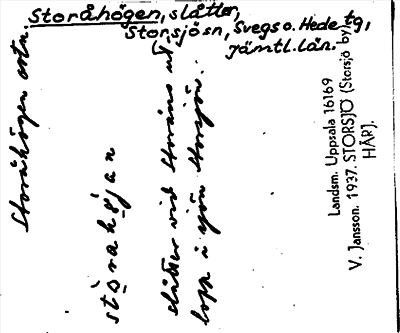 Storåhögen, slåtter,
Storsjö sn, Svegs o. Hede tg,
Jämtl. län.
Storåhögen ortn.
slåtter vid Storåns ut-
lopp i sjön Storsjön.
Landsm. Uppsala 16169
V. Jansson. 1937. STORSJÖ (Storsjö by)
HÄRJ.